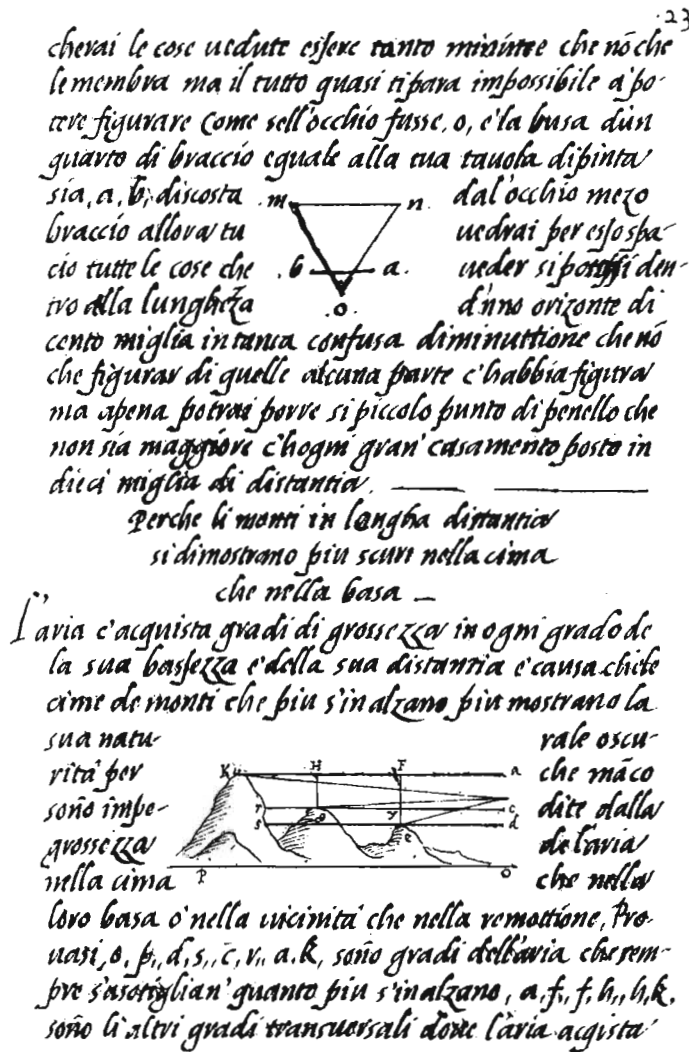 .23
cherai le cose uedute essere tanto minime che nō che
le membra ma il tutto quasi ti para impossibile à po-
tere figurare come sell'occhio fusse, o, e la busa dun
quarto di braccio eguale alla tua tauola dipinta
sia, a, b, discosta dal'occhio mezo
m n
braccio allora tu uedrai per esso spa-
cio tutte le cose che ueder si possi den-
b a
tro alla lunghezza d'uno orizonte di
o
cento miglia in tanta confusa diminuttione che nō
che figurar di quelle alcuna parte c'habbia figura
ma apena potrai porre si piccolo punto di penello che
non sia maggiore c'hogni gran' casamento posto in
dieci miglia di distantia.
Perche li monti in longha distantia
si dimostrano piu scuri nella cima
che nella basa
L'aria c'acquista gradi di grossezza in ogni grado de
la sua bassezza e della sua distantia e causa che le
cime de monti che piu s'inalzano piu mostrano la
sua natu- rale oscu-
rità per che māco
K H F a
sono impe- dite dalla
r g v c
s e d
grossezza de l'aria
nella cima che nella
P O
loro basa o' nella uicinità che nella remottione, Pro-
uasi, o, p,, d, s,, c, r,, a, k, sono gradi dell'aria che sem-
pre s'asottiglian' quanto piu s'inalzano, a, f,, f, h,, h, k,
sono li altri gradi transuersali doue l'aria acqista